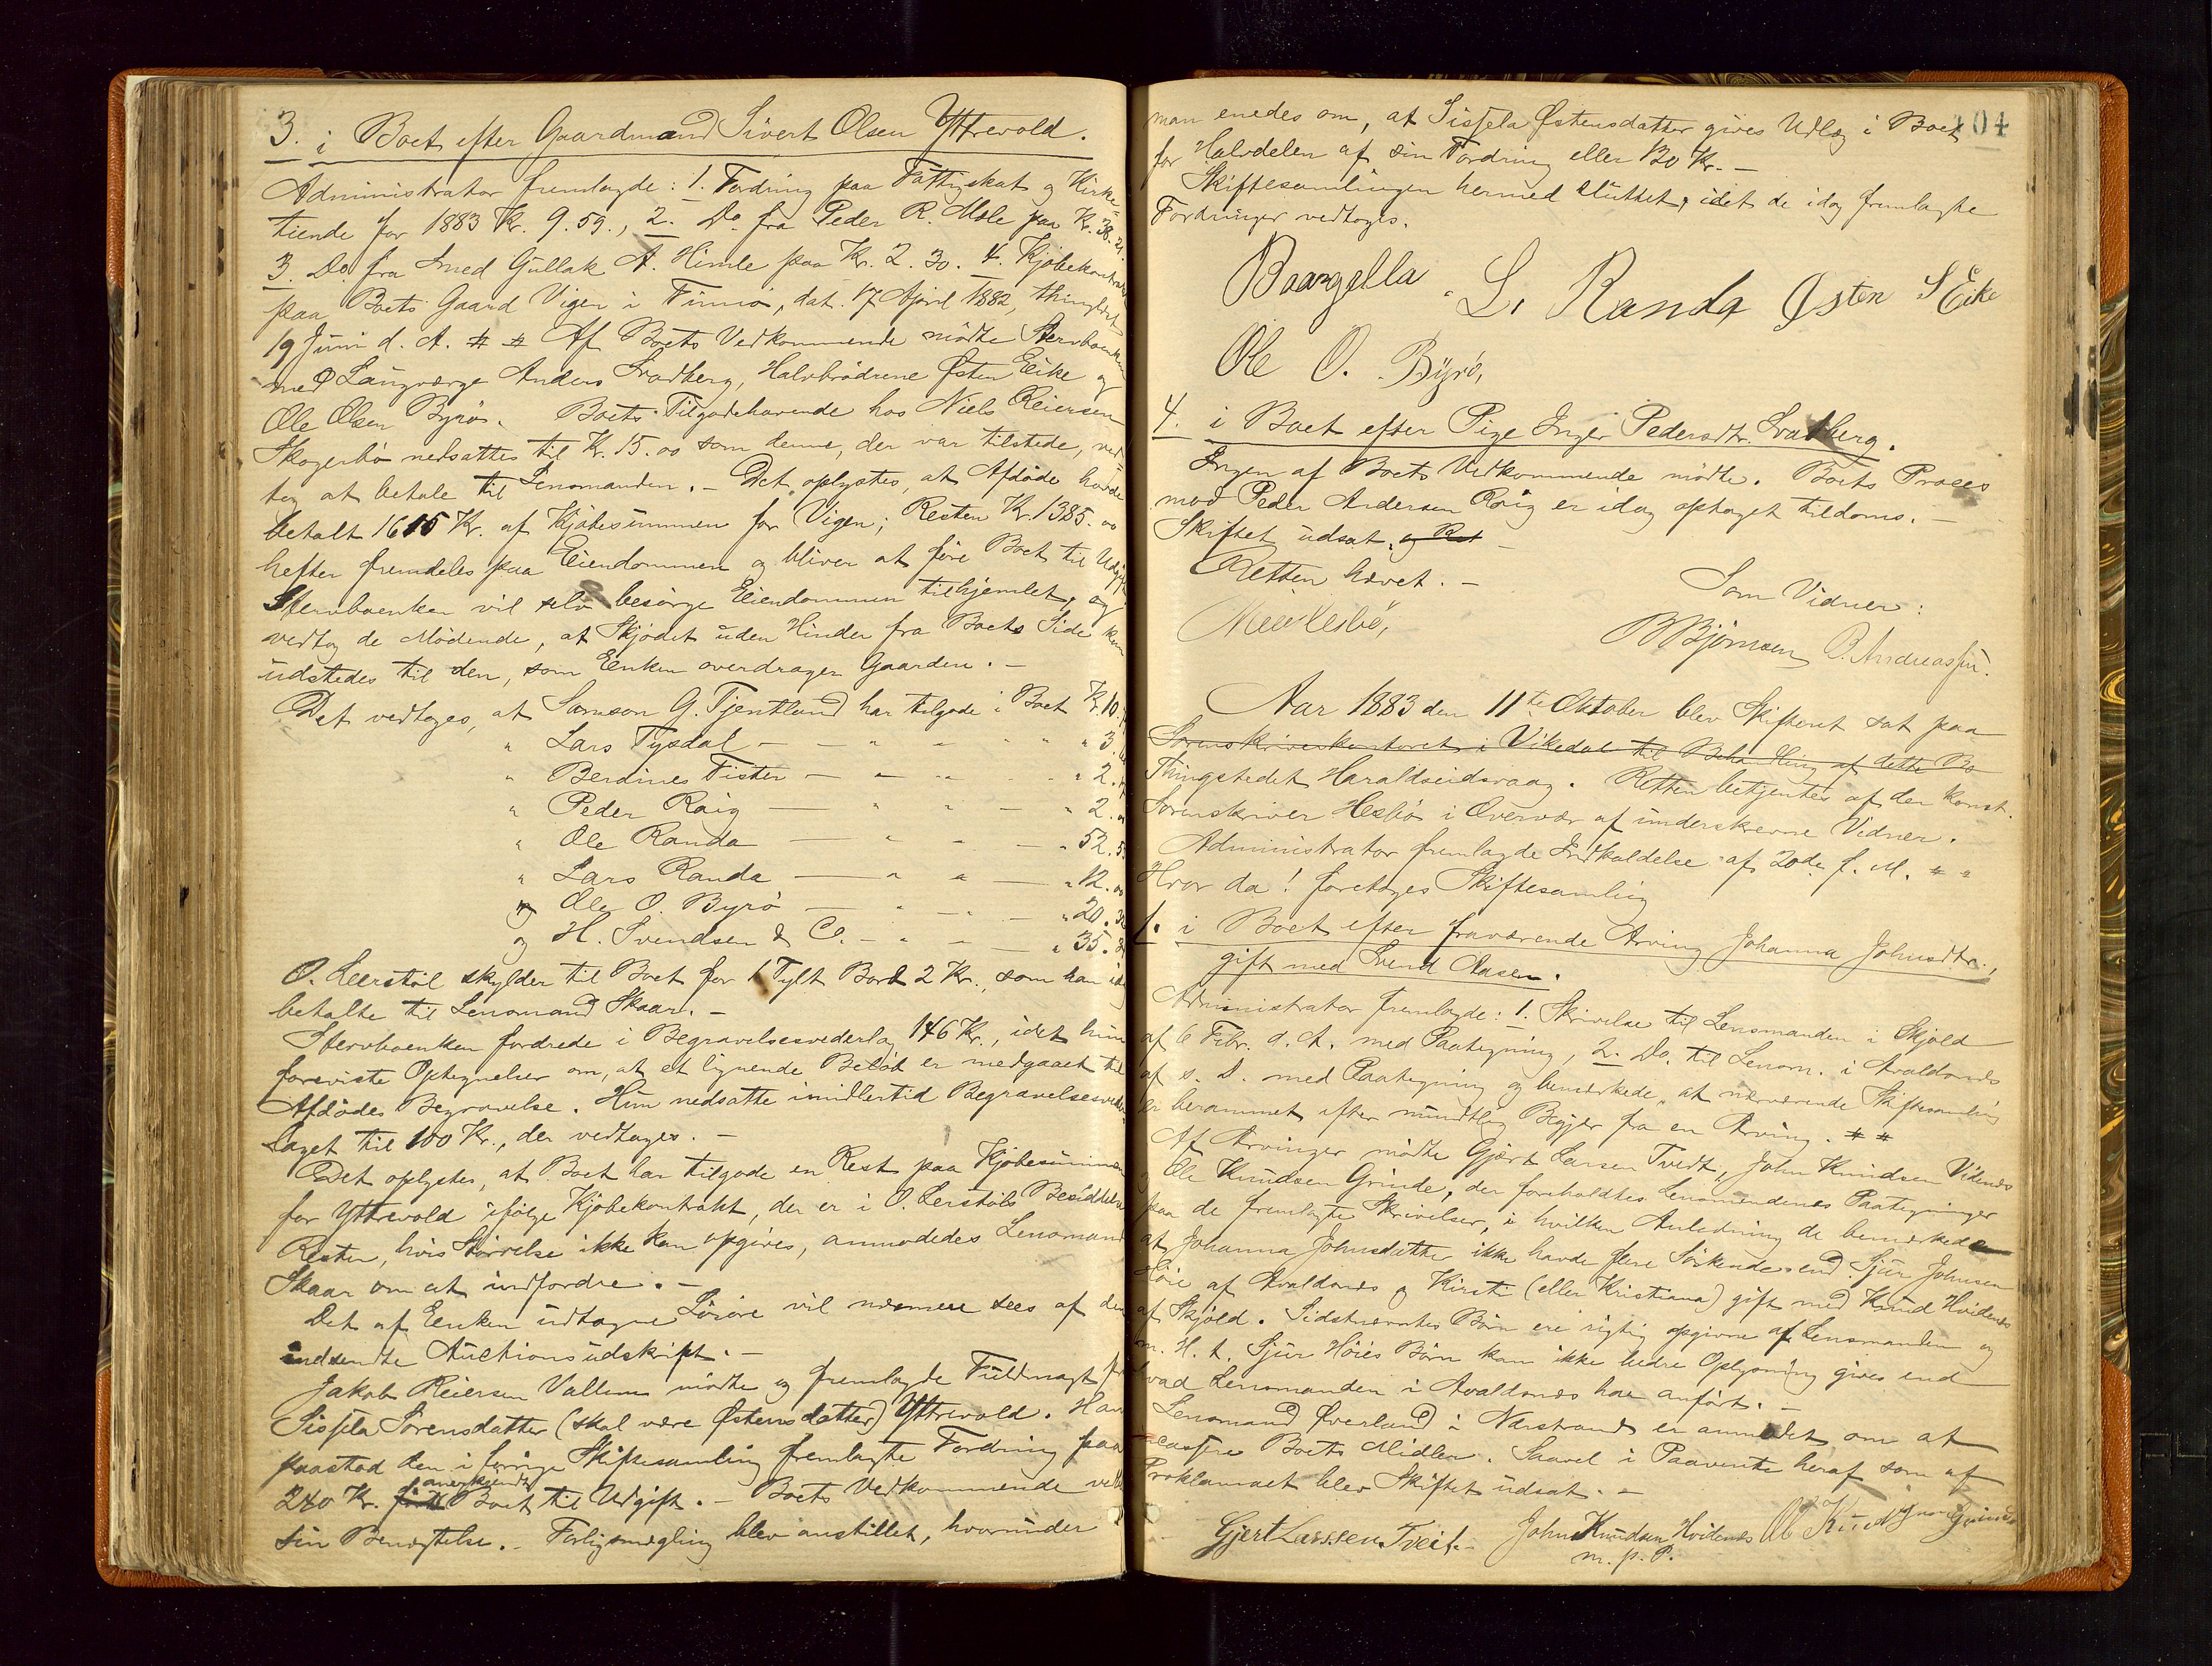 3. i Boet efter Gaardmand Sivert Olsen Yttrevold.
Administrator fremlagde: 1. Fordring paa Fattigskat og Kirke-
tiende for 1883 Kr. 9.59., 2. Do. fra Peder R. Møle paa Kr. 38.21.
3. Do. fra Smed Gullak A. Himle paa Kr. 2.30. 4. Kjøbekontrakt
paa Boets Gaard Vigen i Finnø, dat. 17 April 1882, thinglæst
19 Juni d. A. # # Af Boets Vedkommende mødte Stervboenken
med Laugværge Anders Svadberg, Halvbrødrene Østen Eike og
Ole Olsen Byrø. Boets Tilgodehavende hos Niels Reiersen
Skogerbø nedsattes til Kr. 15.00 som denne, der var tilstede, ved-
tog at betale til Lensmanden. – Det oplystes, at Afdøde havde
betalt 1615 Kr. af Kjøbesummen for Vigen; Resten Kr. 1385.00
hefter fremdeles paa Eiendommen og bliver at føre Boet til Udgift.
Stervboenken vil selv besørge Eiendommen tilhjemlet, og
vedtog de Mødende, at Skjødet uden Hinder fra Boets Side kan
udstedes til den, som Enken overdrager Gaarden. –
Det vedtoges, at Samson G. Tjentland har tilgode i Boet Kr. 10.
" Lars Tysdal – – " " " " 3.
" Berdines Fister – – " " " 2.
" Peder Raig – " " – " 2.
" Ole Randa – " " – " 52.
" Lars Randa – " " – " 12.00
" Ole O. Byrø – " " – " 20.
og H. Svendsen & Co. – " – – " 35.
O. Leerstøl skylder til Boet for 1 Tylt Bord 2 Kr., som han idag
betalte til Lensmand Skaar. –
Stervboenken fordrede i Begravelsesvederlag 146 Kr., idet hun
foreviste Optegnelser om, at et lignende Beløb er medgaaet til
Afdødes Begravelse. Hun nedsatte imidlertid Begravelsesveder-
laget til 100 Kr., der vedtoges. –
Det oplystes, at Boet har tilgode en Rest paa Kjøbesummen
for Yttrevold ifølge Kjøbekontrakt, der er i O. Lerstøls Besiddelse
Resten, hvis Størrelse ikke kan opgives, anmodedes Lensmand
Skaar om at indfordre. –
Det af Enken udtagne Løsøre vil nærmere sees af den
indsendte Auctionsudskrift. –
Jakob Reiersen Vallum mødte og fremlagde Fuldmagt fra
Sissela Sørensdatter (skal være Østensdatter) Yttrevold. Han
paastod den i forrige Skiftesamling fremlagte Fordring paa
240 Kr. anerkjendt Boet til Udgift. – Boets Vedkommende vedtog
sin Benægtelse. – Forligsmægling blev anstillet, hvorunder
104
man enedes om, at Sissela Østensdatter gives Udlæg i Boet
for Halvdelen af sin Fordring eller 120 Kr. –
Skiftesamlingen hermed sluttet, idet de idag fremlagte
Fordringer vedtoges.
L. Randa Østen S Eike
Ole O. Byrø,
4. i Boet efter Pige Inger Pedersdtr. Svadberg.
Ingen af Boets Vedkommende mødte. Boets Proces
mod Peder Andersen Raig er idag optaget tildoms. –
Skiftet udsat, og Ret –
Retten hævet. –
Som Vidner:
B Bjørnsen O. Andreassen.
Aar 1883 den 11te Oktober blev Skifteret sat paa
Sorenskriverkontoret i Vikedal til Behandling af dette Bo
Thingstedet Haraldseidsvaag. Retten betjentes af den konst.
Sorenskriver Hesbø i Overvær af underskrevne Vidner.
Administrator fremlagde Indkaldelse af 20de f. M. # "
Hvor da! foretoges Skiftesamling
1. i Boet efter fraværende Arving Johanna Johnsdtr.,
gift med Svend Aasen.
Administrator fremlagde: 1. Skrivelse til Lensmanden i Skjold
af 6 Febr. d. A. med Paategning, 2. Do. til Lensm. i Avaldsnes
af s. D. med Paategning og bemærkede, at nærværende Skiftesamling
er berammet efter mundtlig Begjær fra en Arving. # #
Af Arvinger mødte Gjert Larsen Tvedt, John Knudsen Videnes
og Ole Knudsen Grinde, der foreholdtes Lensmendenes Paategninger
paa de fremlagte Skrivelser, i hvilken Anledning de bemærkede
at Johanna Johnsdatter ikke havde flere Søskende end Sjur Johnsen
Høie af Avaldsnes og Kirsti (eller Kristiana) gift med Knud Hvidenes
af Skjold. Sidstnævntes Børn ere rigtig opgivne af Lensmanden og
m. H. t. Sjur Høies Børn kan ikke bedre Oplysning gives end
hvad Lensmanden i Avaldsnes har anført. –
Lensmand Øverland i Nærstrand er anmodet om at
incassere Boets Midler. Saavel i Paavente heraf som af
Proklamaet blev Skiftet udsat. –
Gjert Larssen Tveit. – John Knudsen Hvidenes Ole Knudsen Grinde
m. p. P.